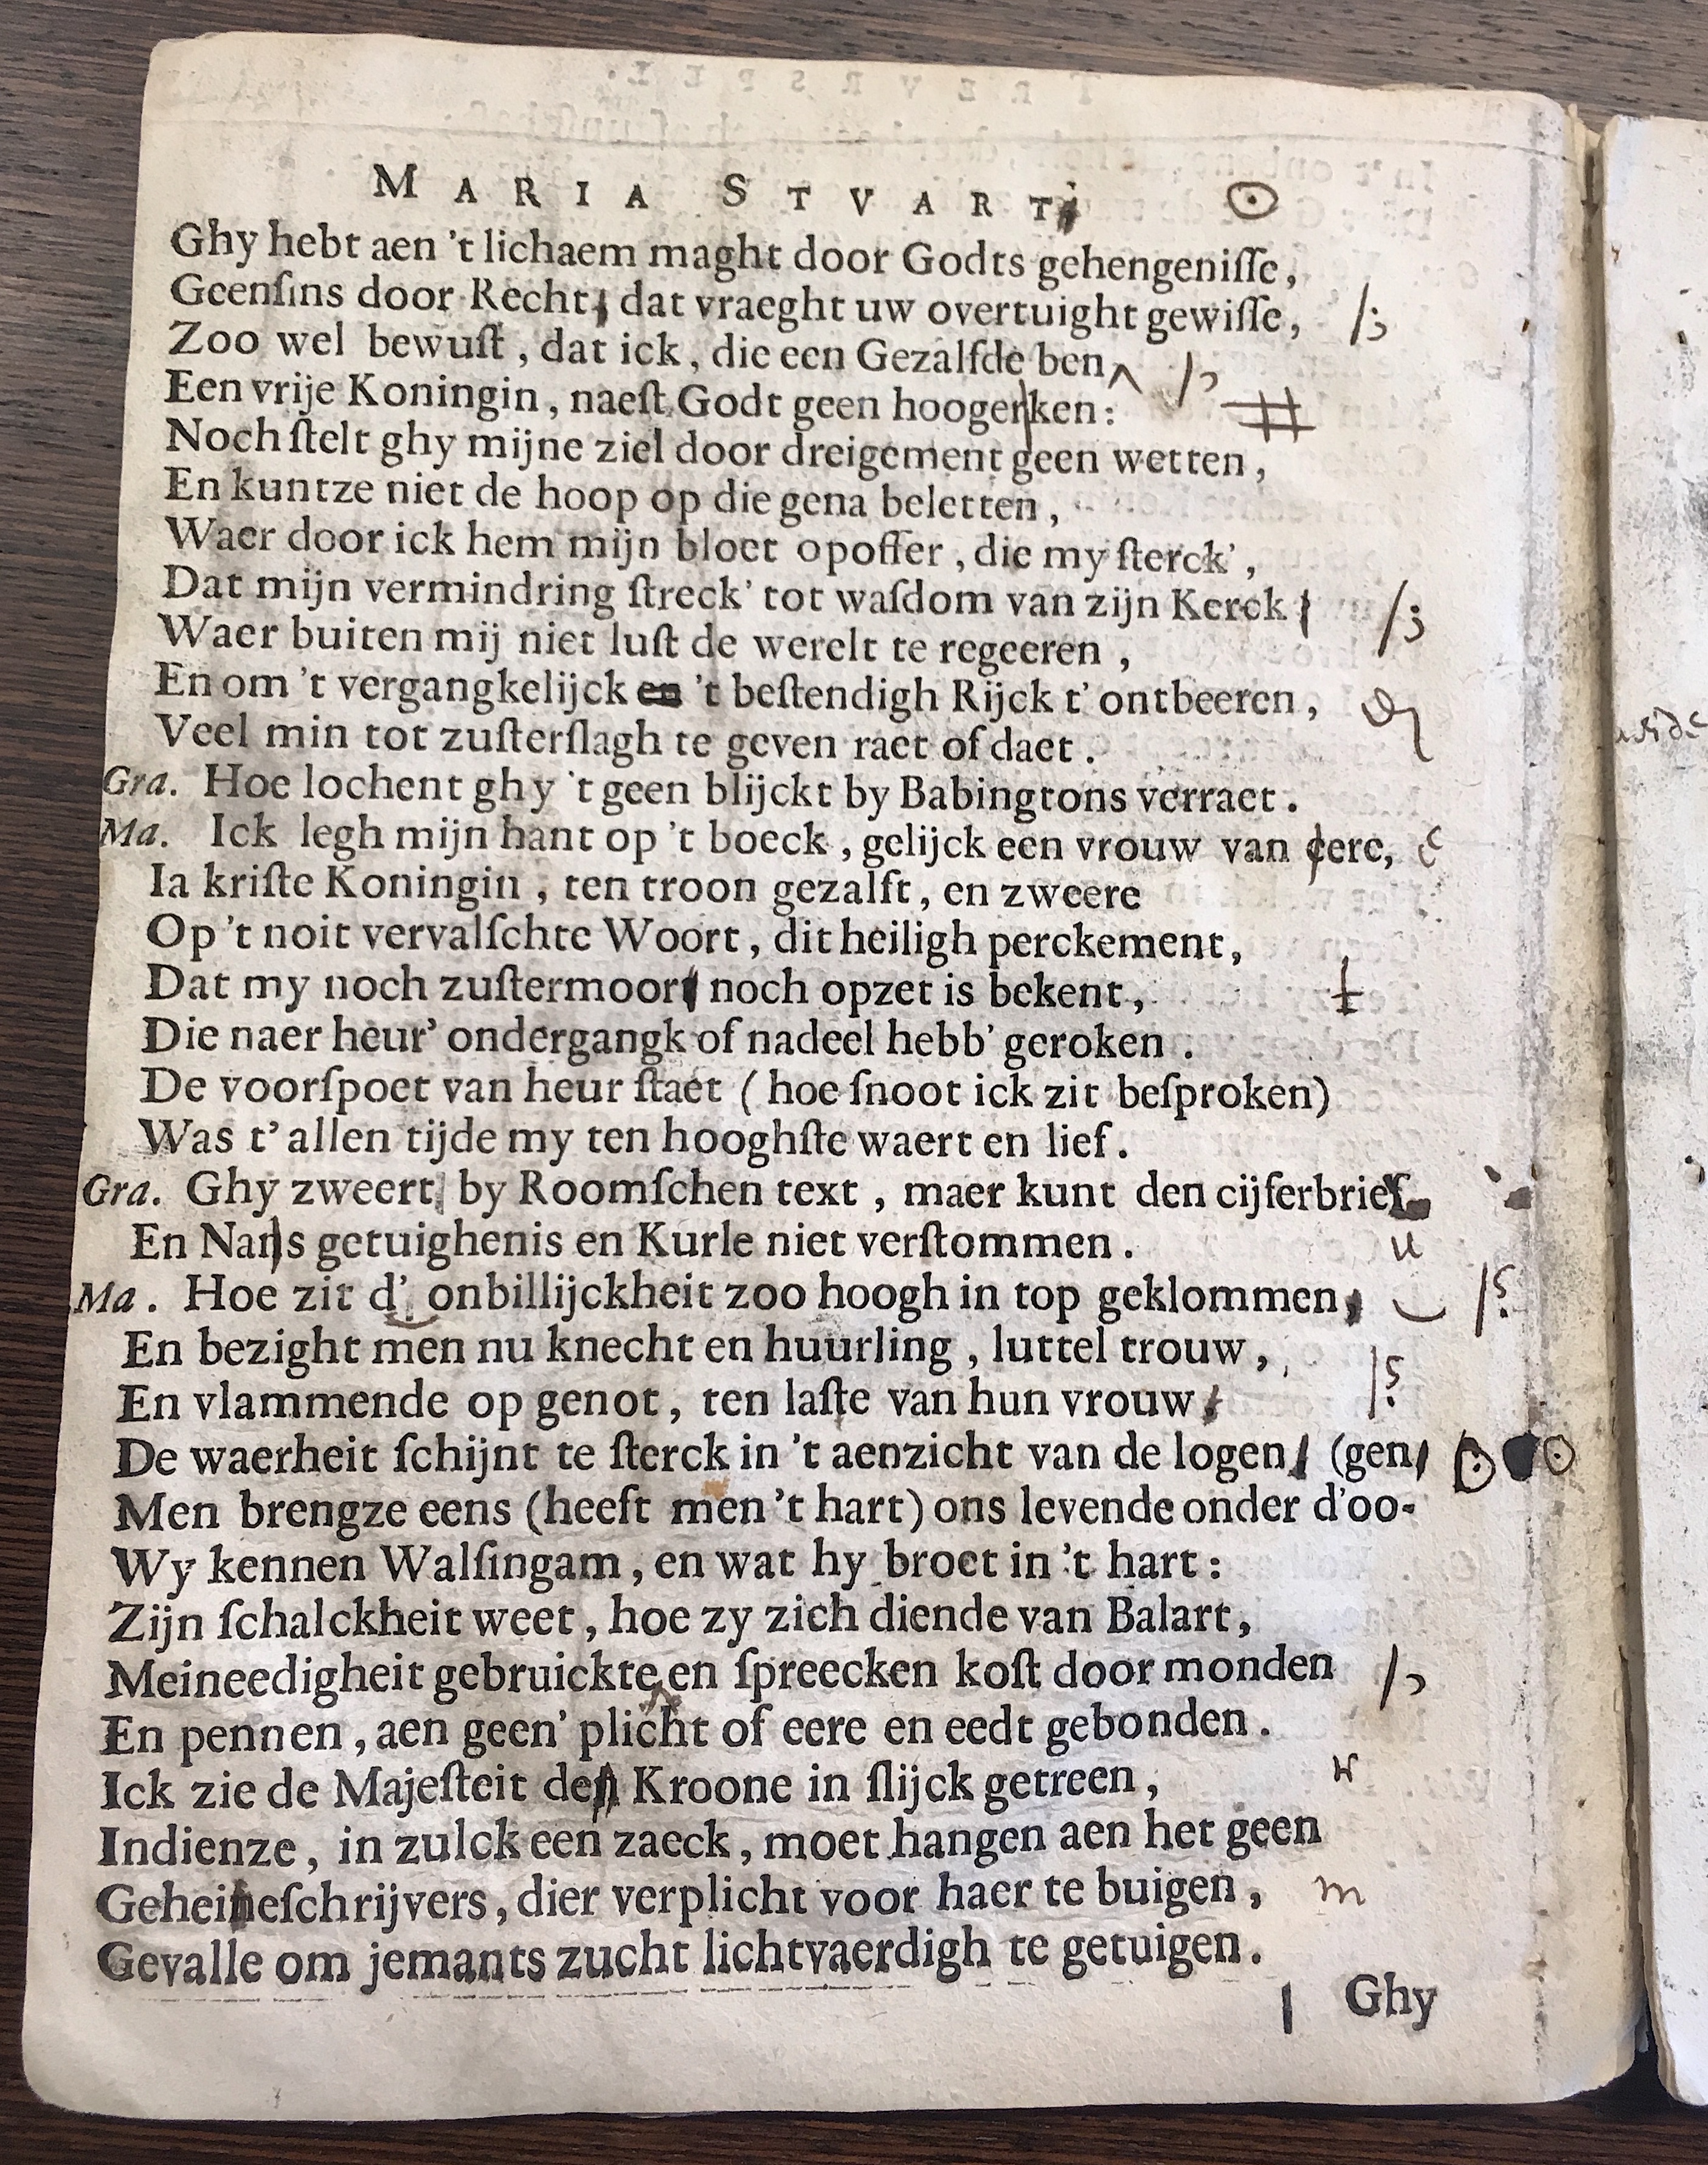 MARIA STVART
Ghy hebt aen 't lichaem maght door Godts gehengeniſſe,
Geenſins door Recht, dat vraeght uw overtuight gewiſſe, /;
Zoo wel bewuſt, dat ick, die een Gezalfde ben /,
Een vrije Koningin, naeſt Godt geen hooger ken: #
Noch ſtelt ghy mijne ziel door dreigement geen wetten,
En kuntze niet de hoop op die gena beletten,
Waer door ick hem mijn bloet opoffer, die my ſterck',
Dat mijn vermindring ſtreck' tot waſdom van zijn Kerck /;
Waer buiten mij niet luſt de werelt te regeeren,
En om 't vergangkelijck en 't beſtendigh Rijck t' ontbeeren,
Veel min tot zuſterſlagh te geven raet of daet.
Gra. Hoe lochent ghy 't geen blijckt by Babingtons verraet.
Ma. Ick legh mijn hant op 't boeck, gelijck een vrouw van eere, e
Ia kriſte Koningin, ten troon gezalft, en zweere
Op 't noit vervalſchte Woort, dit heiligh perckement,
Dat my noch zuſtermoor noch opzet is bekent, t
Die naer heur' ondergangk of nadeel hebb' geroken.
De voorſpoet van heur ſtaet (hoe ſnoot ick zit beſproken)
Was t' allen tijde my ten hooghſte waert en lief.
Gra. Ghy zweert by Roomſchen text, maer kunt den cijferbrief
En Nans getuighenis en Kurle niet verſtommen. u
Ma. Hoe zit d' onbillijckheit zoo hoogh in top geklommen, /?
En bezight men nu knecht en huurling, luttel trouw,
En vlammende op genot, ten laſte van hun vrouw /?
De waerheit ſchijnt te ſterck in 't aenzicht van de logen, (gen,
Men brengze eens (heeft men 't hart) ons levende onder d'oo-
Wy kennen Walſingam, en wat hy broet in 't hart:
Zijn ſchalckheit weet, hoe zy zich diende van Balart,
Meineedigheit gebruickte en ſpreecken koſt door monden /,
En pennen, aen geen' plicht of eere en eedt gebonden.
Ick zie de Majeſteit den Kroone in ſlijck getreen, r
Indienze, in zulck een zaeck, moet hangen aen het geen
Geheineſchrijvers, dier verplicht voor haer te buigen, m
Gevalle om jemants zucht lichtvaerdigh te getuigen.
Ghy